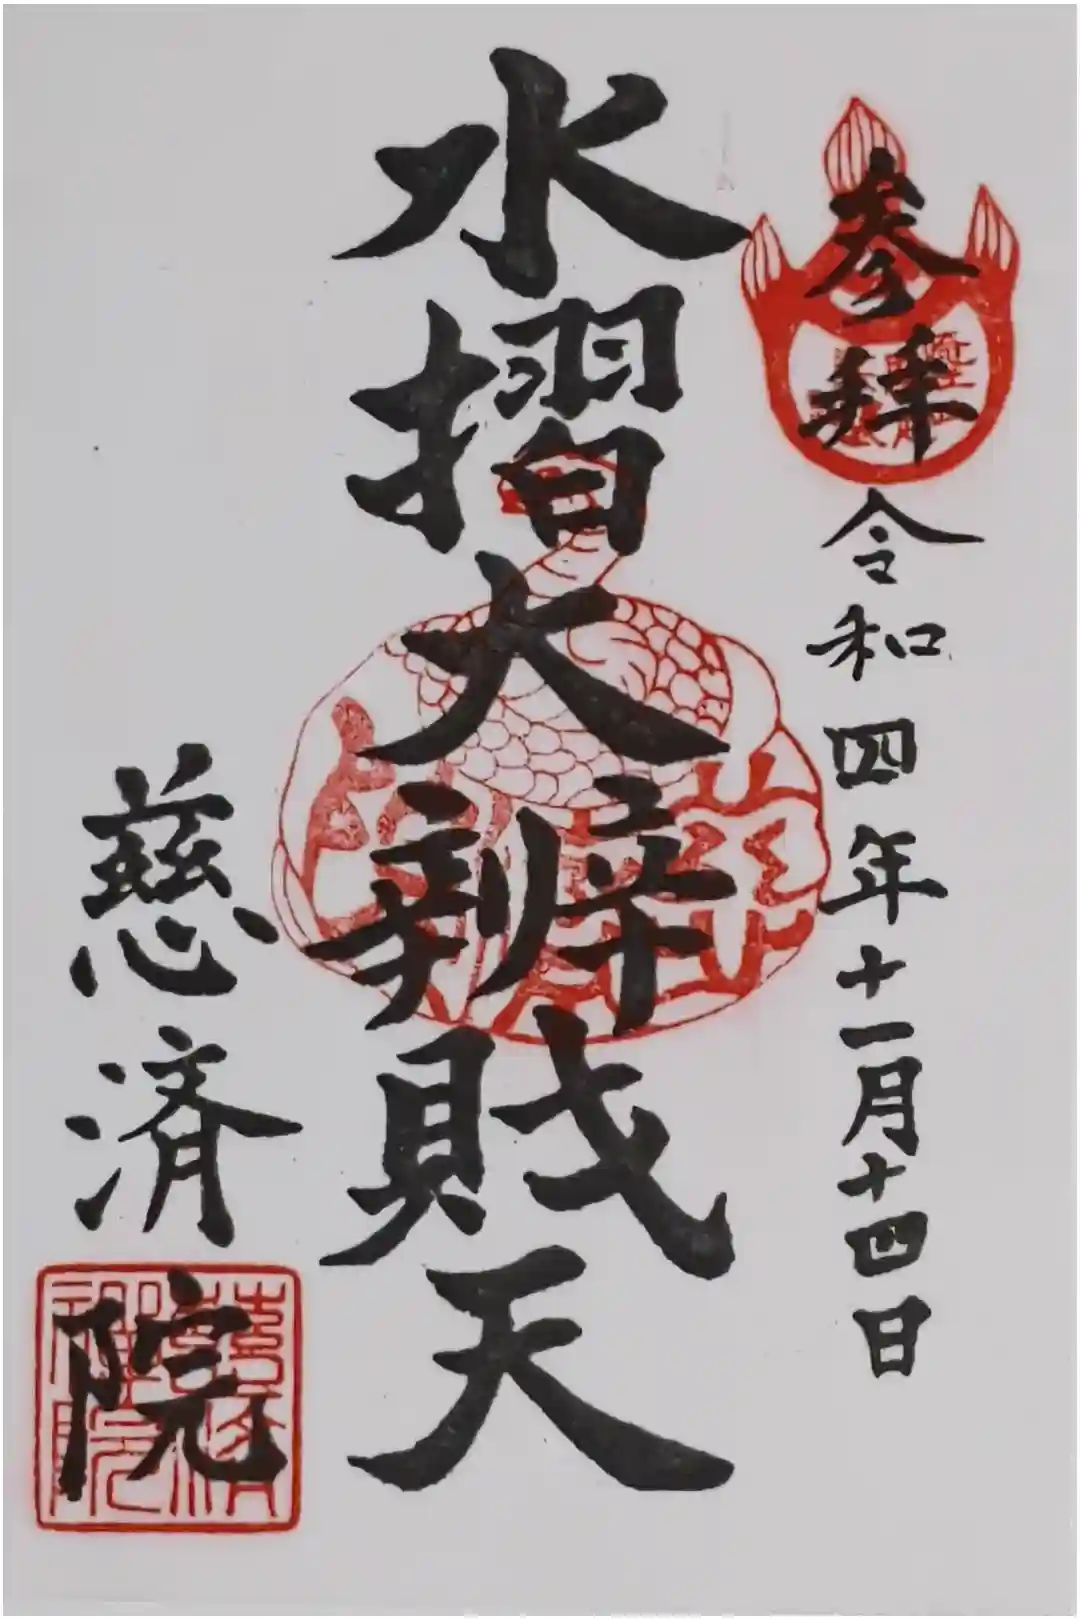 参拝 令和四年十一月十四日
水摺大辨財天
慈済院